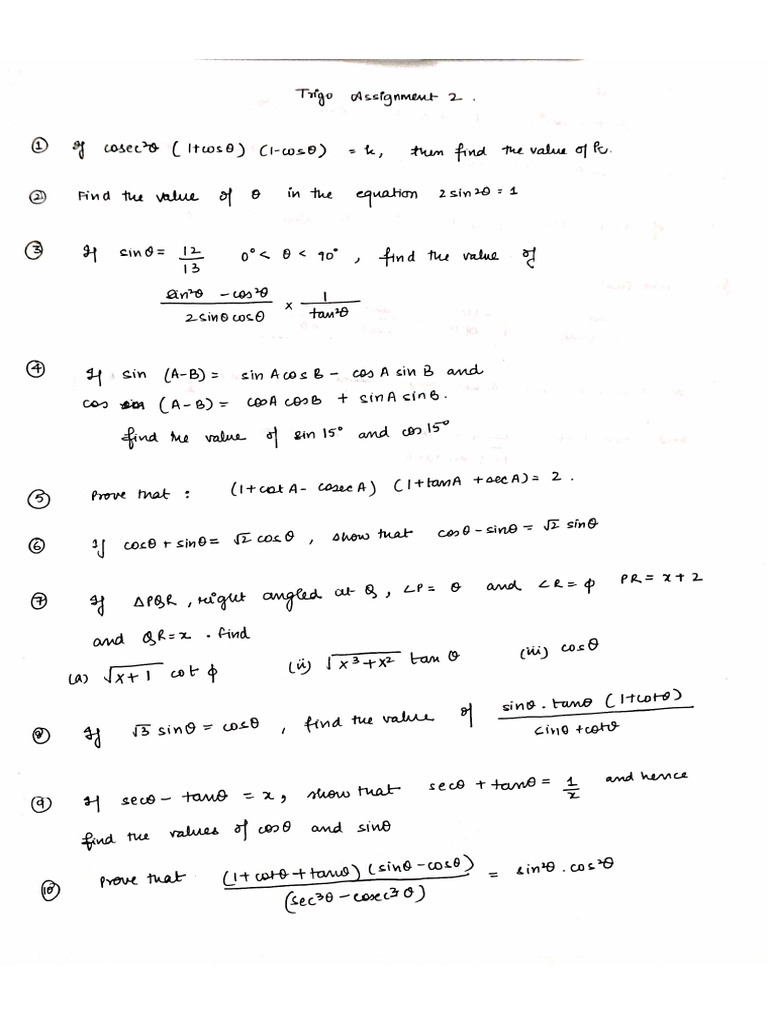 Trigo Assignment 2.
① If cosec²θ (1+cosθ) (1-cosθ) = k, then find the value of k.
② Find the value of θ in the equation 2 sin²θ = 1
③ If sinθ = 12/13 0° < θ < 90°, find the value of
(sin²θ - cos²θ)/(2 sinθ cosθ) × 1/tan²θ
④ If sin (A-B) = sin A cos B - cos A sin B and
cos (A-B) = cosA cosB + sinA sinB.
find the value of sin 15° and cos 15°
⑤ Prove that : (1+cot A - cosec A) (1+tanA + secA) = 2.
⑥ If cosθ + sinθ = √2 cosθ, show that cosθ - sinθ = √2 sinθ
⑦ If ΔPQR, right angled at Q, ∠P = θ and ∠R = φ PR = x+2
and QR = x. find
(a) √(x+1) cot φ (ii) √(x³+x²) tan θ (iii) cosθ
⑧ If √3 sinθ = cosθ, find the value of (sinθ . tanθ (1+cotθ))/(sinθ + cotθ)
⑨ If secθ - tanθ = x, show that secθ + tanθ = 1/x and hence
find the values of cosθ and sinθ
⑩ Prove that ((1+cotθ+tanθ) (sinθ - cosθ))/((sec³θ - cosec³θ)) = sin²θ . cos²θ